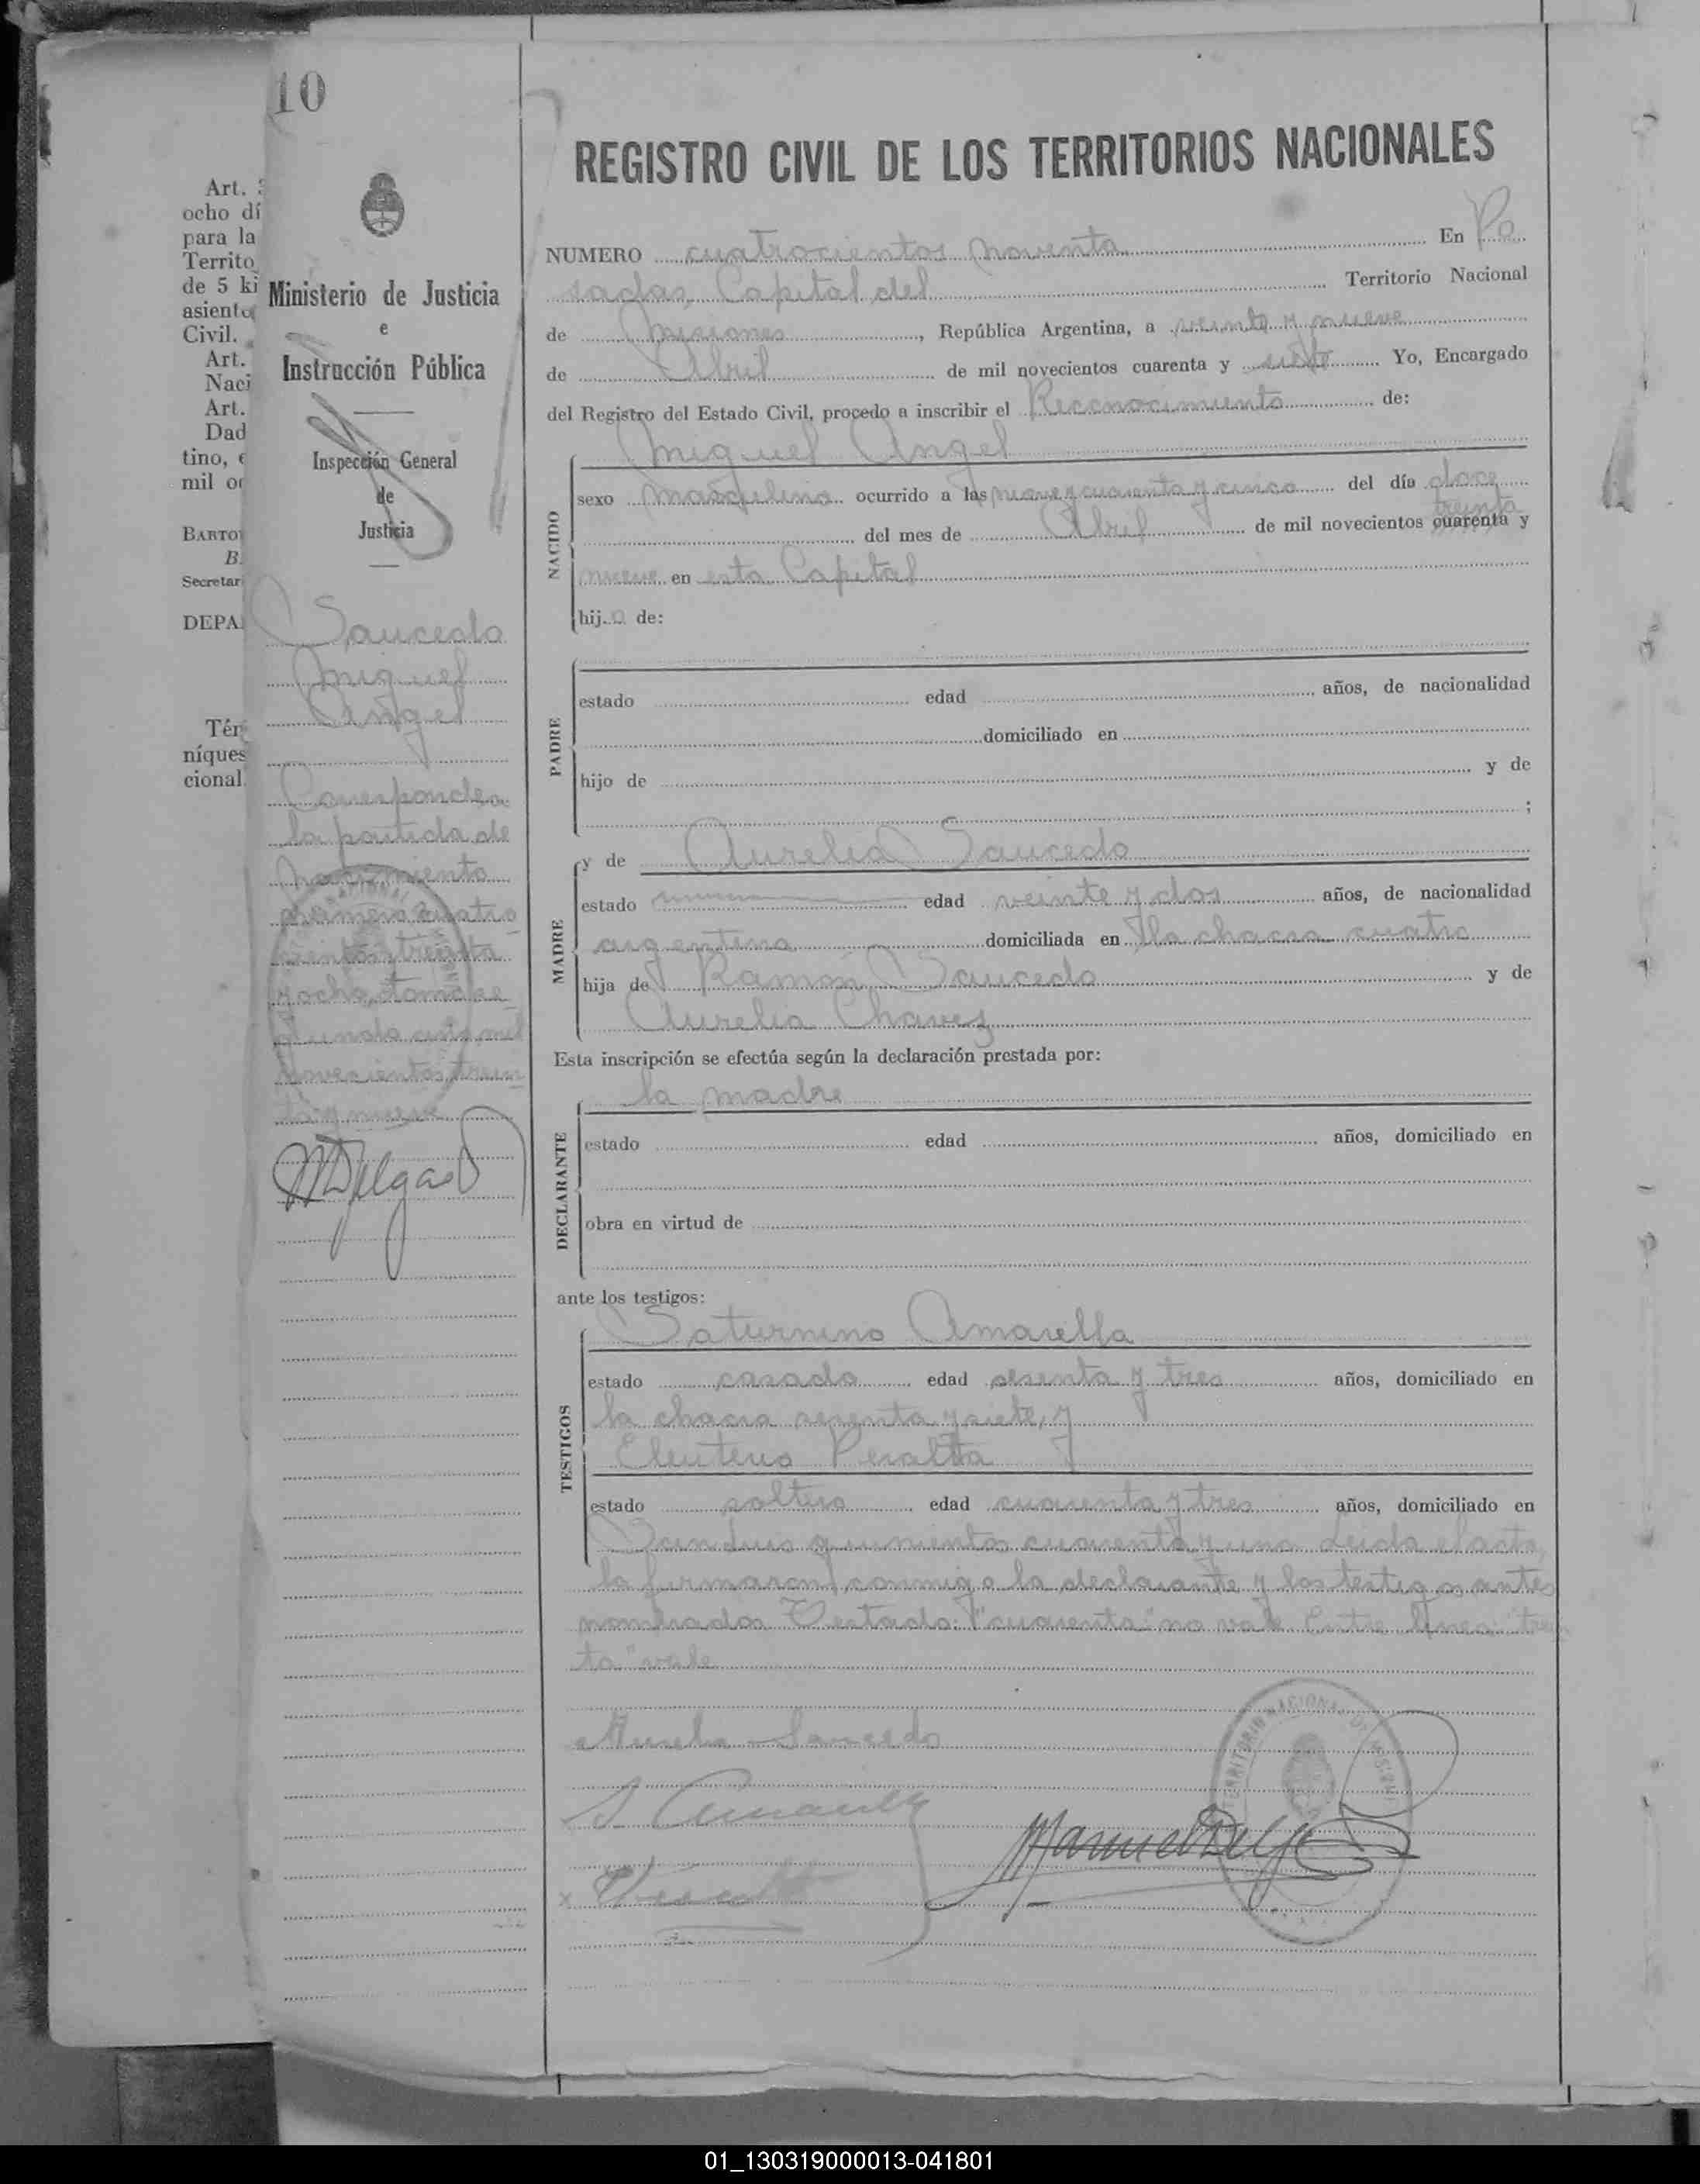 10
Art.
ocho dí
para la
Territo
de 5 ki
asiento
Civil.
Art.
Naci
Art.
Dad
tino, e
mil o
BARTO
B.
Secretar
DEPA
Tér
níques
cional
Ministerio de Justicia
e
Instrucción Pública
Inspección General
de
Justicia
Saucedo
Miguel
Angel
Corresponde a
la partida de
nacimiento
número cuatro
cientos treinta
y ocho, tomo se
gundo año mil
novecientos trein
ta y nueve
MDelgado
REGISTRO CIVIL DE LOS TERRITORIOS NACIONALES
NUMERO cuatrocientos noventa En Po
sadas, Capital del Territorio Nacional
de Misiones, República Argentina, a veinte y nueve
de Abril de mil novecientos cuarenta y siete Yo, Encargado
del Registro del Estado Civil, procedo a inscribir el Reconocimiento de:
Miguel Angel
NACIDO
sexo masculino ocurrido a las nueve y cuarenta y cinco del día doce
treinta
del mes de Abril de mil novecientos cuarenta y
nueve en esta Capital
hijo de:
PADRE
estado edad años, de nacionalidad
domiciliado en
hijo de y de
;
MADRE
y de Aurelia Saucedo
estado edad veinte y dos años, de nacionalidad
argentina domiciliada en la chacra cuatro
hija de Ramón Saucedo y de
Aurelia Chavez
Esta inscripción se efectúa según la declaración prestada por:
DECLARANTE
la madre
estado edad años, domiciliado en
obra en virtud de
ante los testigos:
TESTIGOS
Saturnino Amarella
estado casado edad sesenta y tres años, domiciliado en
la chacra sesenta y siete, y
Eleuterio Peralta
estado soltero edad cuarenta y tres años, domiciliado en
quinientos cuarenta y uno Leida el acta,
la firmaron conmigo la declarante y los testigos antes
nombrados Testado: "cuarenta" no vale. Entre línea: "trein
ta" vale
Aurelia Saucedo
S Amarella
Manuel Delgado
TERRITORIO NACIONAL DE MISIONES
01_130319000013-041801